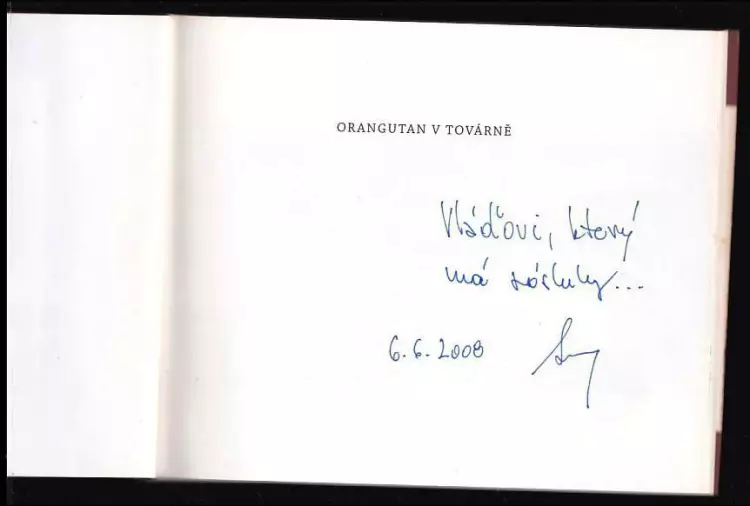 ORANGUTAN V TOVÁRNĚ
Vláďovi, který
má zásluhy...
6.6.2008